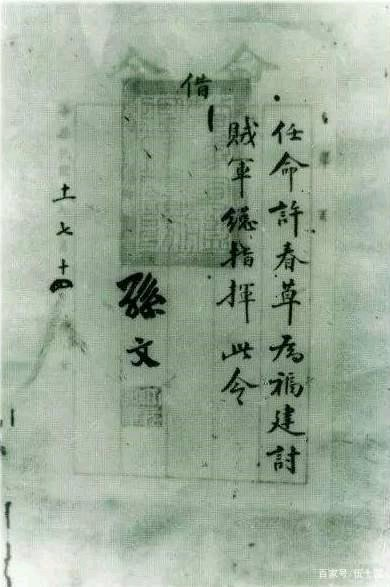 任命許春草為福建討
賊軍總指揮此令
借
孫文
十一 七 十四
百家号/伍七